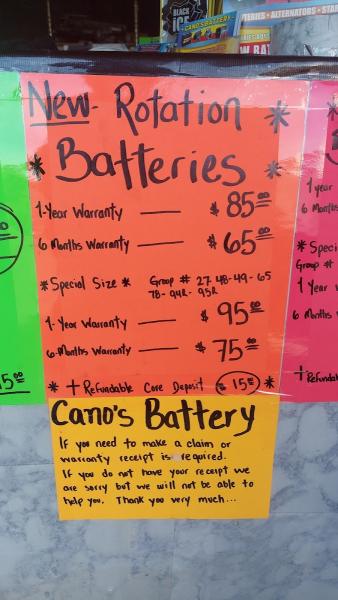 BLACK
ICE
CANO'S BATTERY
TERIES • ALTERNATORS • STAR
New Rotation
* Batteries *
1-Year Warranty — $ 85.00
6 Months Warranty — $ 65.00
* Special Size * Group # 27-48-49-65
78-94R-95R
1-Year Warranty — $ 95.00
6-Months Warranty — $ 75.00
* + Refundable Core Deposit $ 15.00 *
Cano's Battery
If you need to make a claim or
warranty receipt is required.
If you do not have your receipt we
are sorry but we will not be able to
help you. Thank you very much...
1 year
6 Months
* Speci
Group #
1 Year
6 Months
+ Refunda